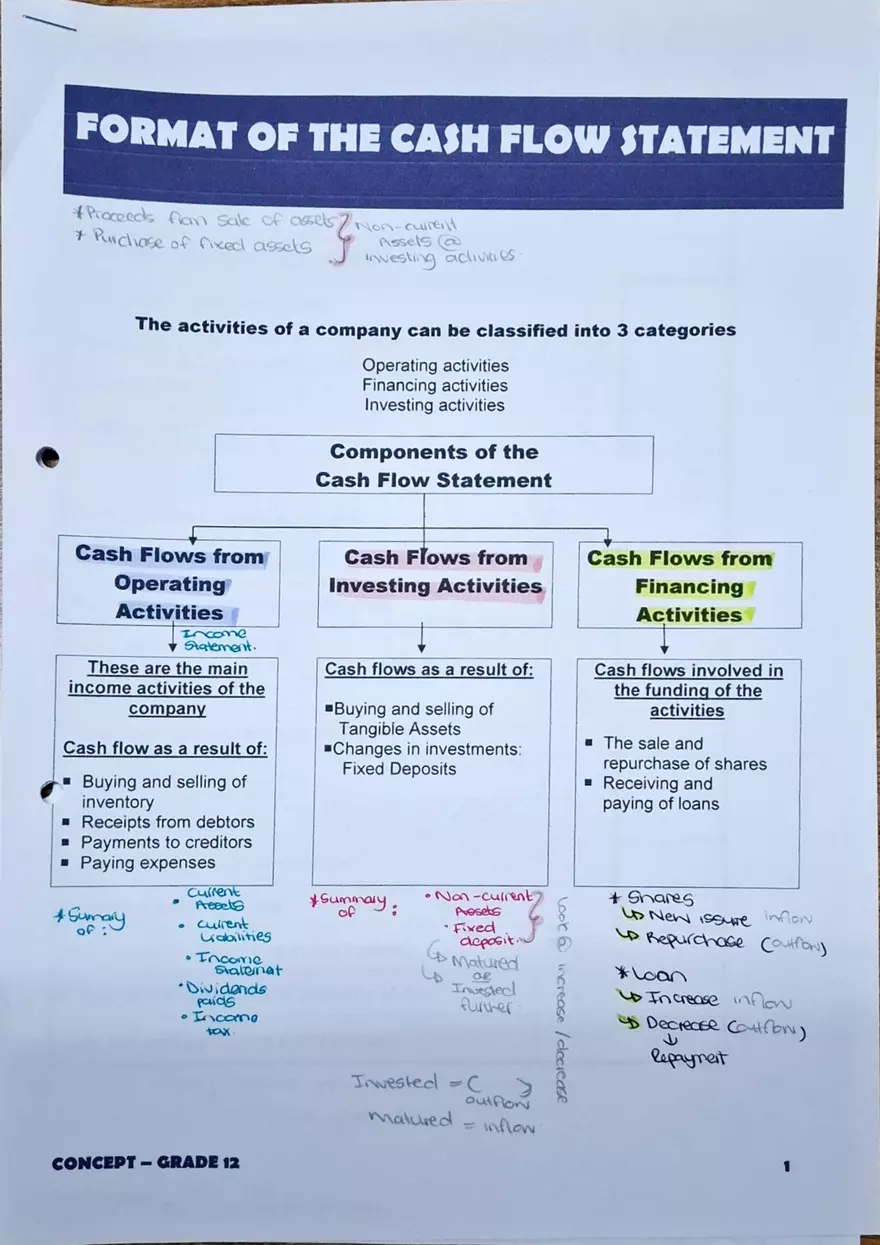 FORMAT OF THE CASH FLOW STATEMENT
*Proceeds from sale of assets
* Purchase of fixed assets
Non-current
Assets @
investing activities.
The activities of a company can be classified into 3 categories
Operating activities
Financing activities
Investing activities
Components of the
Cash Flow Statement
Cash Flows from
Operating
Activities
Income
Statement.
These are the main
income activities of the
company
Cash flow as a result of:
▪ Buying and selling of
inventory
▪ Receipts from debtors
▪ Payments to creditors
▪ Paying expenses
*Sumary
of :
• Current
Assets
• Current
Liabilities
• Income
Statemet
• Dividends
paids
• Income
tax.
Cash Flows from
Investing Activities
Cash flows as a result of:
▪Buying and selling of
Tangible Assets
▪Changes in investments:
Fixed Deposits
*Summary
of :
• Non-current
Assets
• Fixed
deposit.
↳ Matured
↳ or
Invested
further.
look @ increase / decrease
Invested = ( )
outflow
Matured = inflow
Cash Flows from
Financing
Activities
Cash flows involved in
the funding of the
activities
▪ The sale and
repurchase of shares
▪ Receiving and
paying of loans
* Shares
↳ New issure inflow
↳ Repurchase (outflow)
*Loan
↳ Increase inflow
↳ Decrease (outflow)
↓
Repayment
CONCEPT – GRADE 12
1